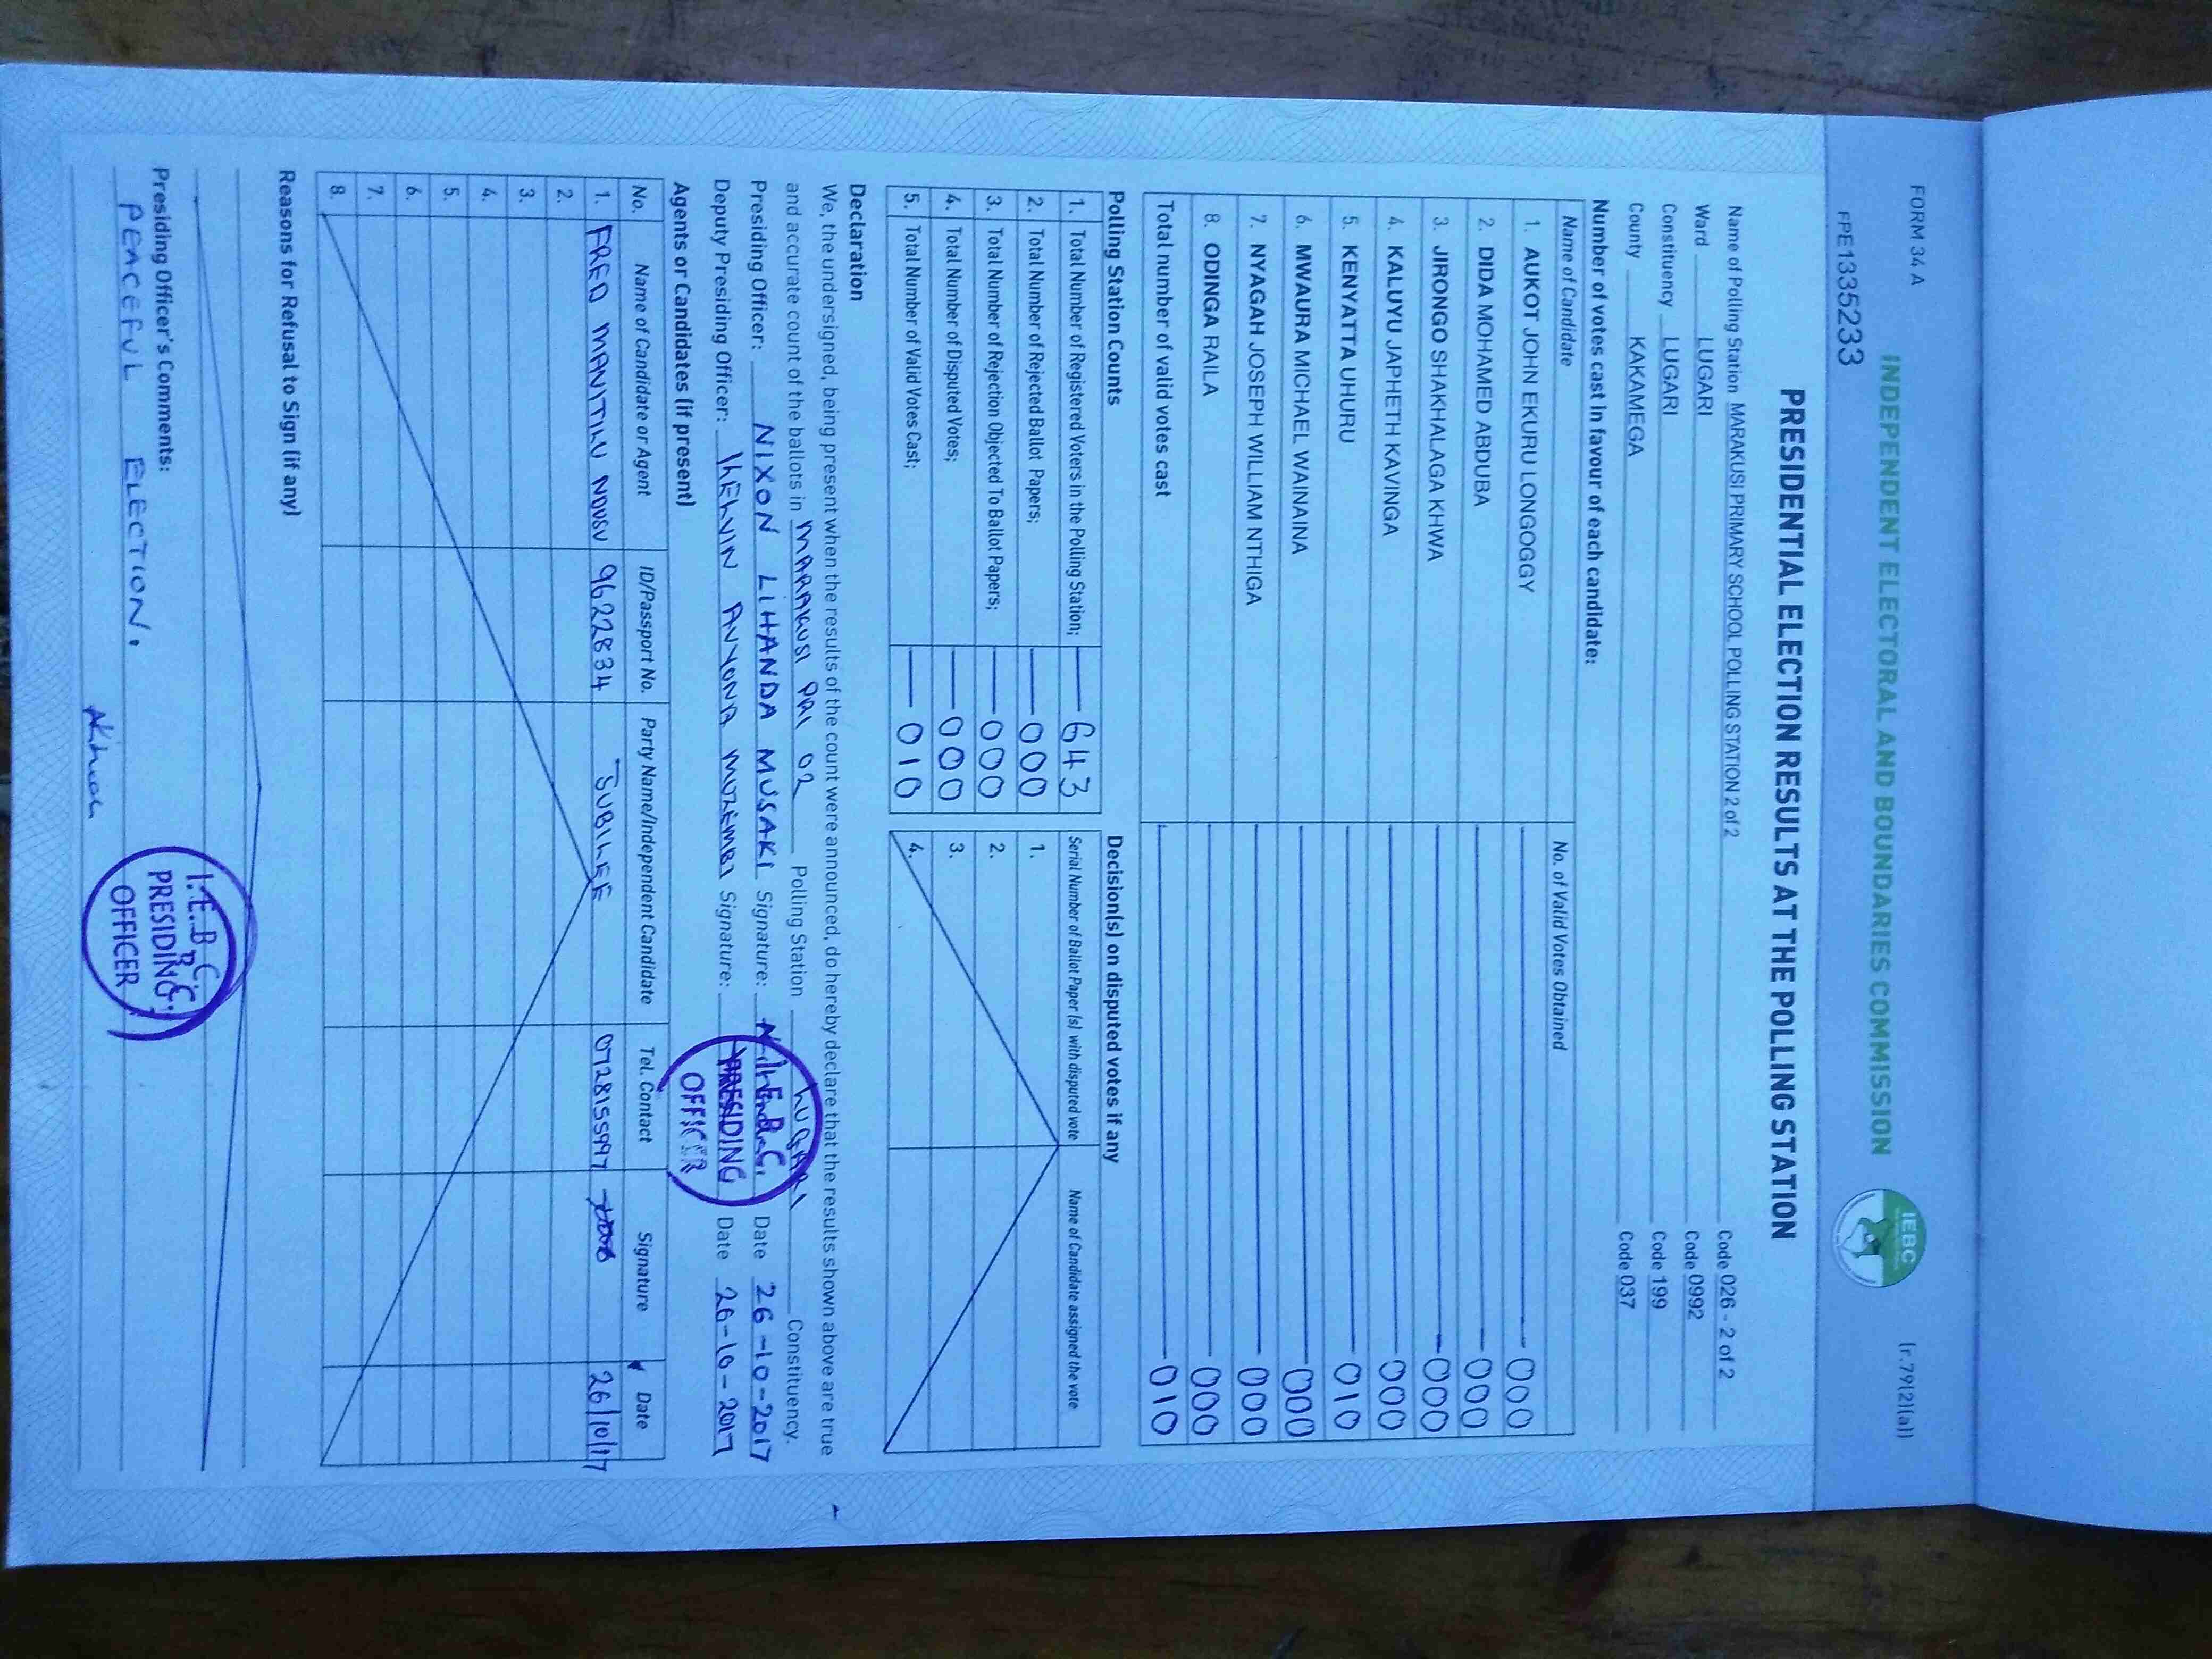 FORM 34 A
(r.79(2)(a))
INDEPENDENT ELECTORAL AND BOUNDARIES COMMISSION
IEBC
FPE1335233
PRESIDENTIAL ELECTION RESULTS AT THE POLLING STATION
Name of Polling Station MARAKUSI PRIMARY SCHOOL POLLING STATION 2 of 2 Code 026 - 2 of 2
Ward LUGARI Code 0992
Constituency LUGARI Code 199
County KAKAMEGA Code 037
Number of votes cast in favour of each candidate:
Name of Candidate No. of Valid Votes Obtained
1. AUKOT JOHN EKURU LONGOGGY 000
2. DIDA MOHAMED ABDUBA 000
3. JIRONGO SHAKHALAGA KHWA 000
4. KALUYU JAPHETH KAVINGA 000
5. KENYATTA UHURU 010
6. MWAURA MICHAEL WAINAINA 000
7. NYAGAH JOSEPH WILLIAM NTHIGA 000
8. ODINGA RAILA 000
Total number of valid votes cast 010
Polling Station Counts
1. Total Number of Registered Voters in the Polling Station; 643
2. Total Number of Rejected Ballot Papers; 000
3. Total Number of Rejection Objected To Ballot Papers; 000
4. Total Number of Disputed Votes; 000
5. Total Number of Valid Votes Cast; 010
Decision(s) on disputed votes if any
Serial Number of Ballot Paper (s) with disputed vote Name of Candidate assigned the vote
1.
2.
3.
4.
Declaration
We, the undersigned, being present when the results of the count were announced, do hereby declare that the results shown above are true
and accurate count of the ballots in MARAKUSI PRI 02 Polling Station LUGARI Constituency.
Presiding Officer: NIXON LIHANDA MUSAKI Signature: Date 26-10-2017
Deputy Presiding Officer: KELVIN Signature: Date 26-10-2017
I.E.B.C.
PRESIDING
OFFICER
Agents or Candidates (if present)
No. Name of Candidate or Agent ID/Passport No. Party Name/Independent Candidate Tel. Contact Signature Date
1. FRED 9622834 JUBILEE 0728155997 26/10/17
2.
3.
4.
5.
6.
7.
8.
Reasons for Refusal to Sign (if any)
Presiding Officer's Comments:
PEACEFUL ELECTION.
I.E.B.C.
PRESIDING
OFFICER